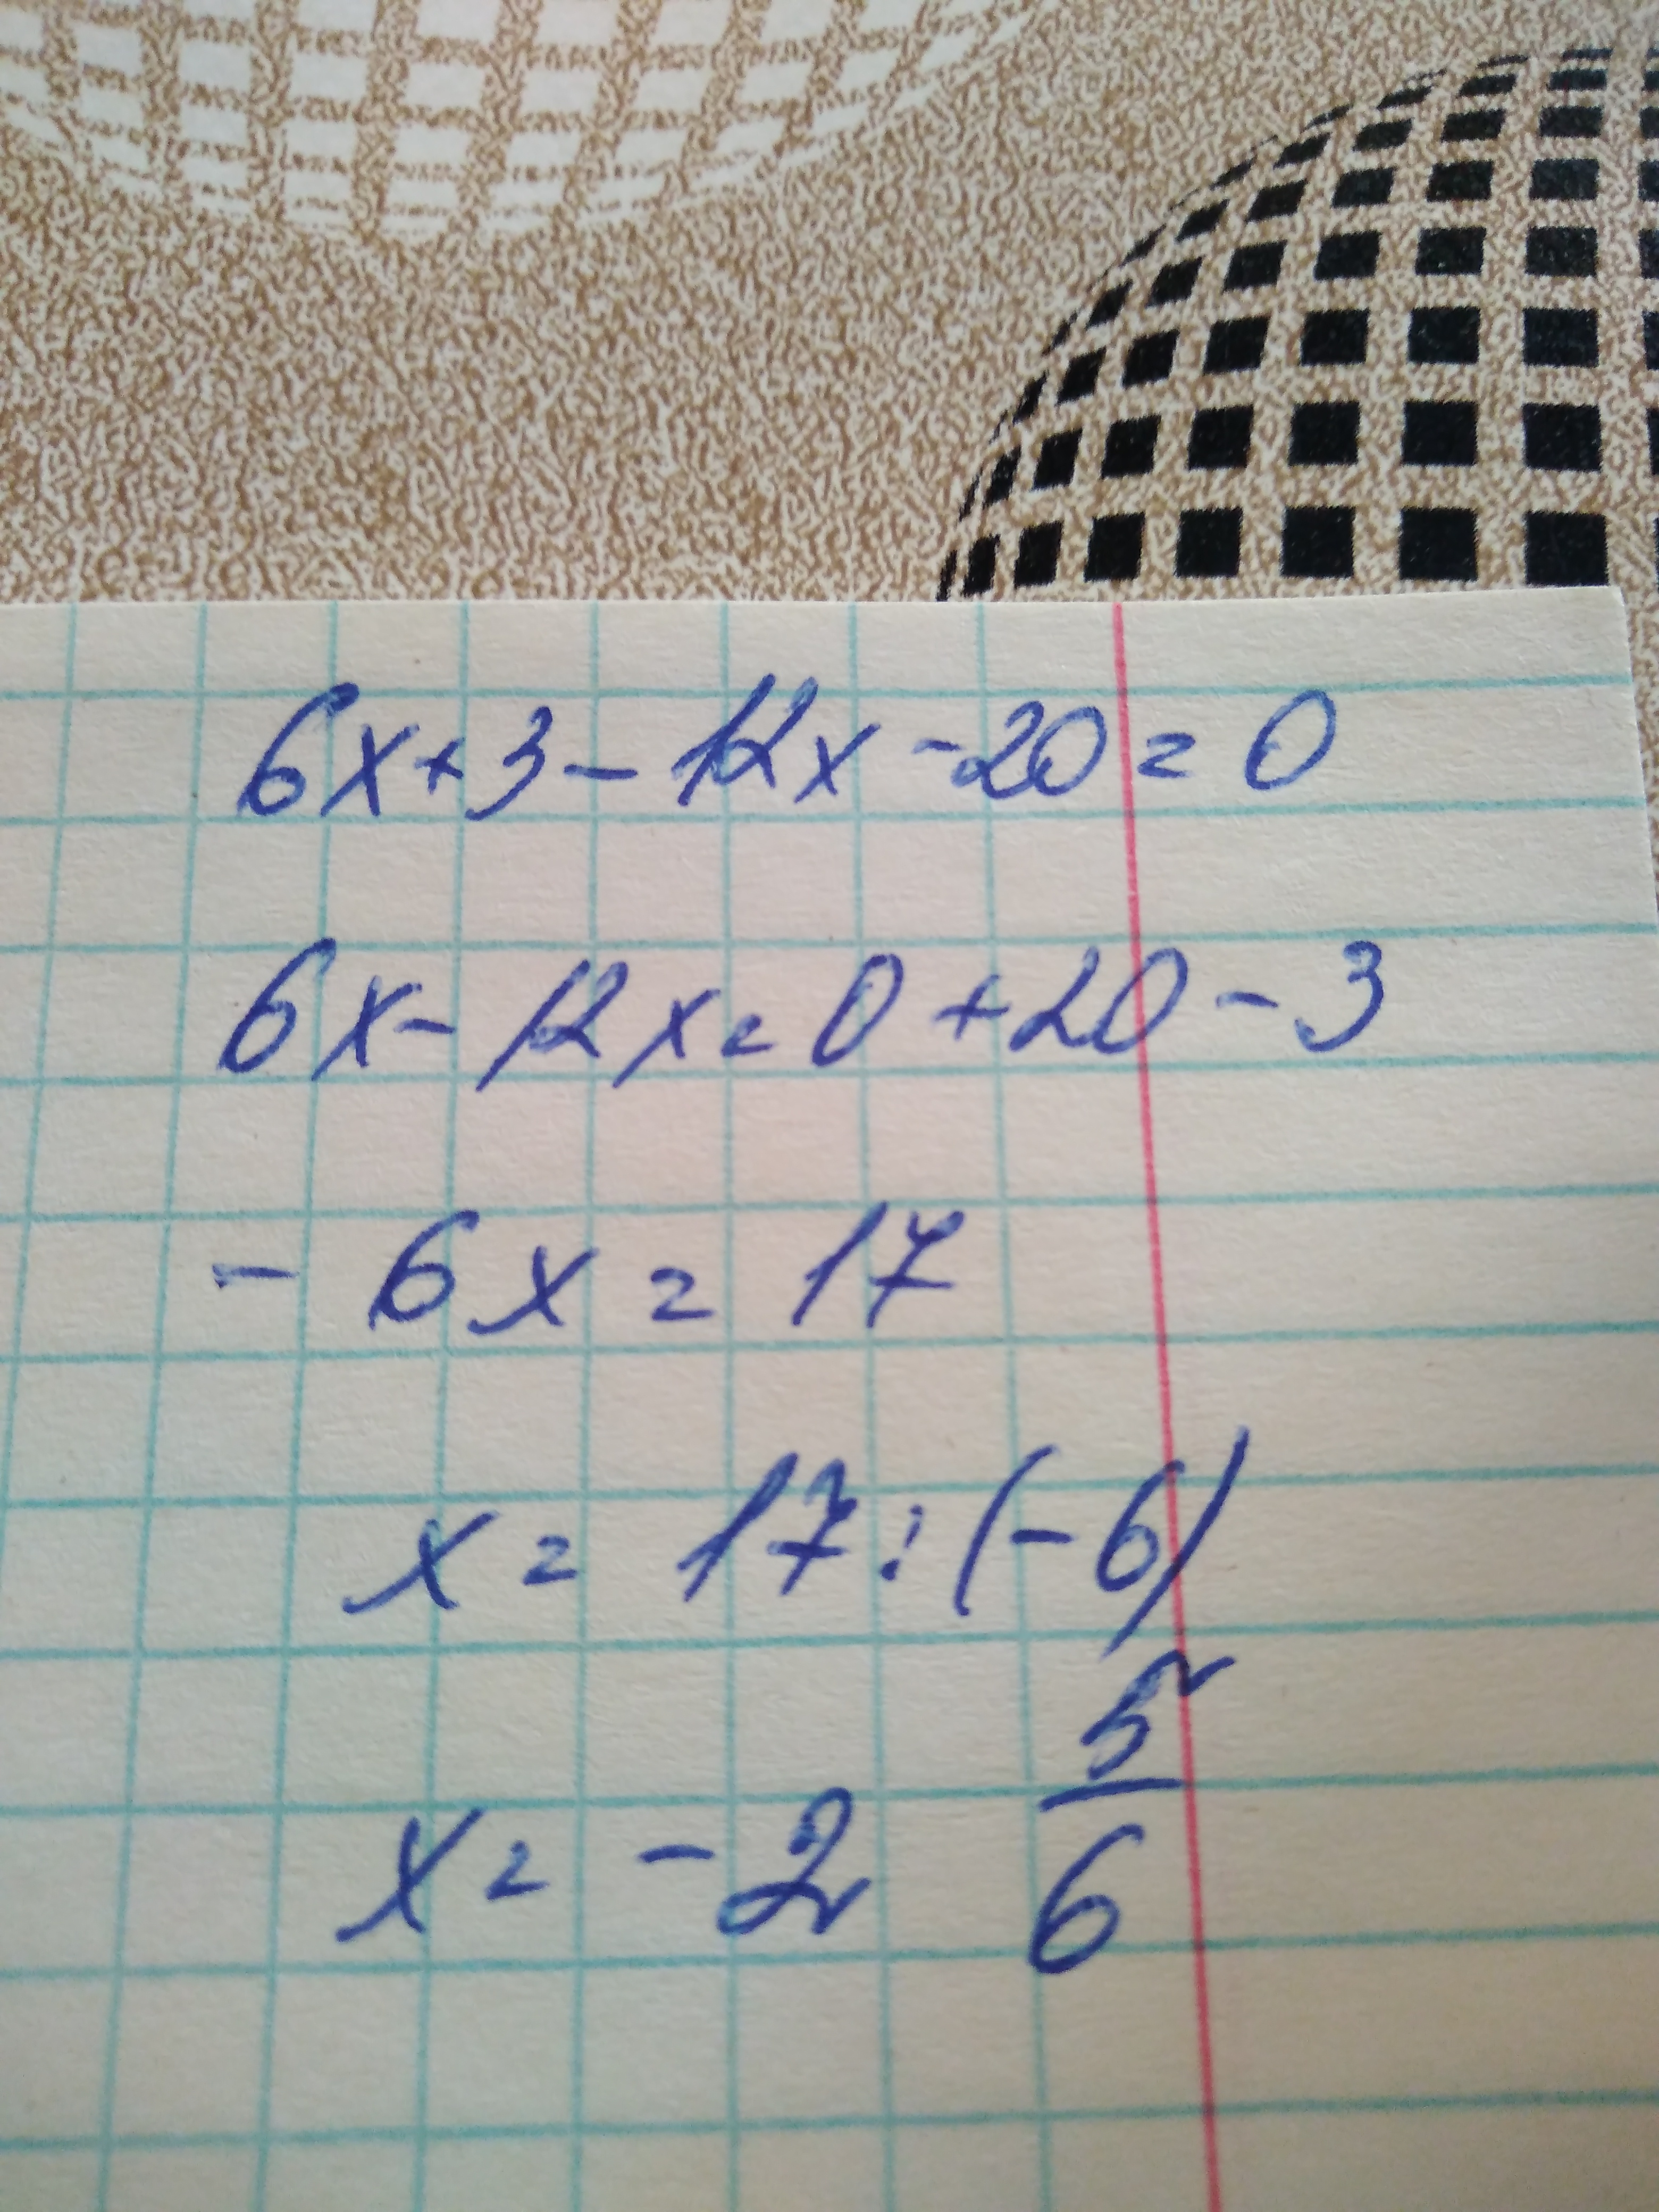 6x+3-12x-20=0
6x-12x=0+20-3
-6x=17
x=17:(-6)
x=-2 5/6